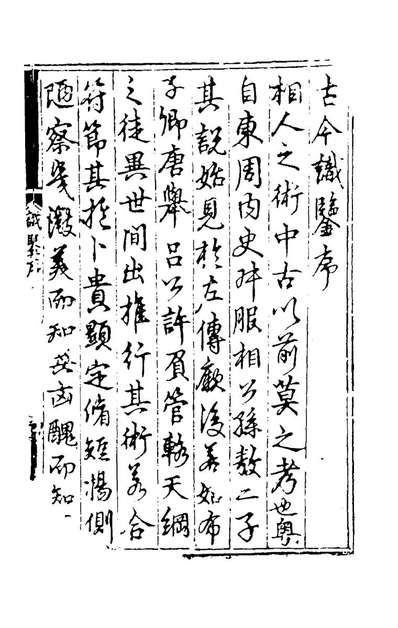 古今識鑒序
相人之術中古以前莫之考也粵
自東周内史叔服相公孫敖二子
其說始見於左傳厥後若姑布
子卿唐舉呂公許負管輅天綱
之徒異世間出推行其術若合
符節其於卜貴顯定脩短揚側
陋察幾微美而知惡凶醜而知